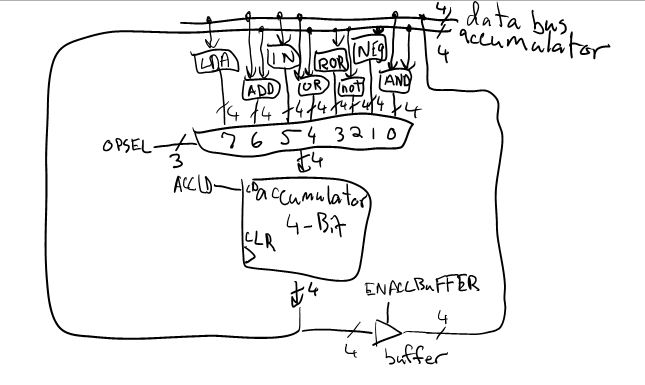 4 data bus
4 accumulator
LDA ADD IN OR ROR not NEG AND
4 4 4 4 4 4 4 4
7 6 5 4 3 2 1 0
OPSEL 3
4
ACCLD LD accumulator
4-Bit
CLR
4
ENACCBUFFER
4 4
buffer